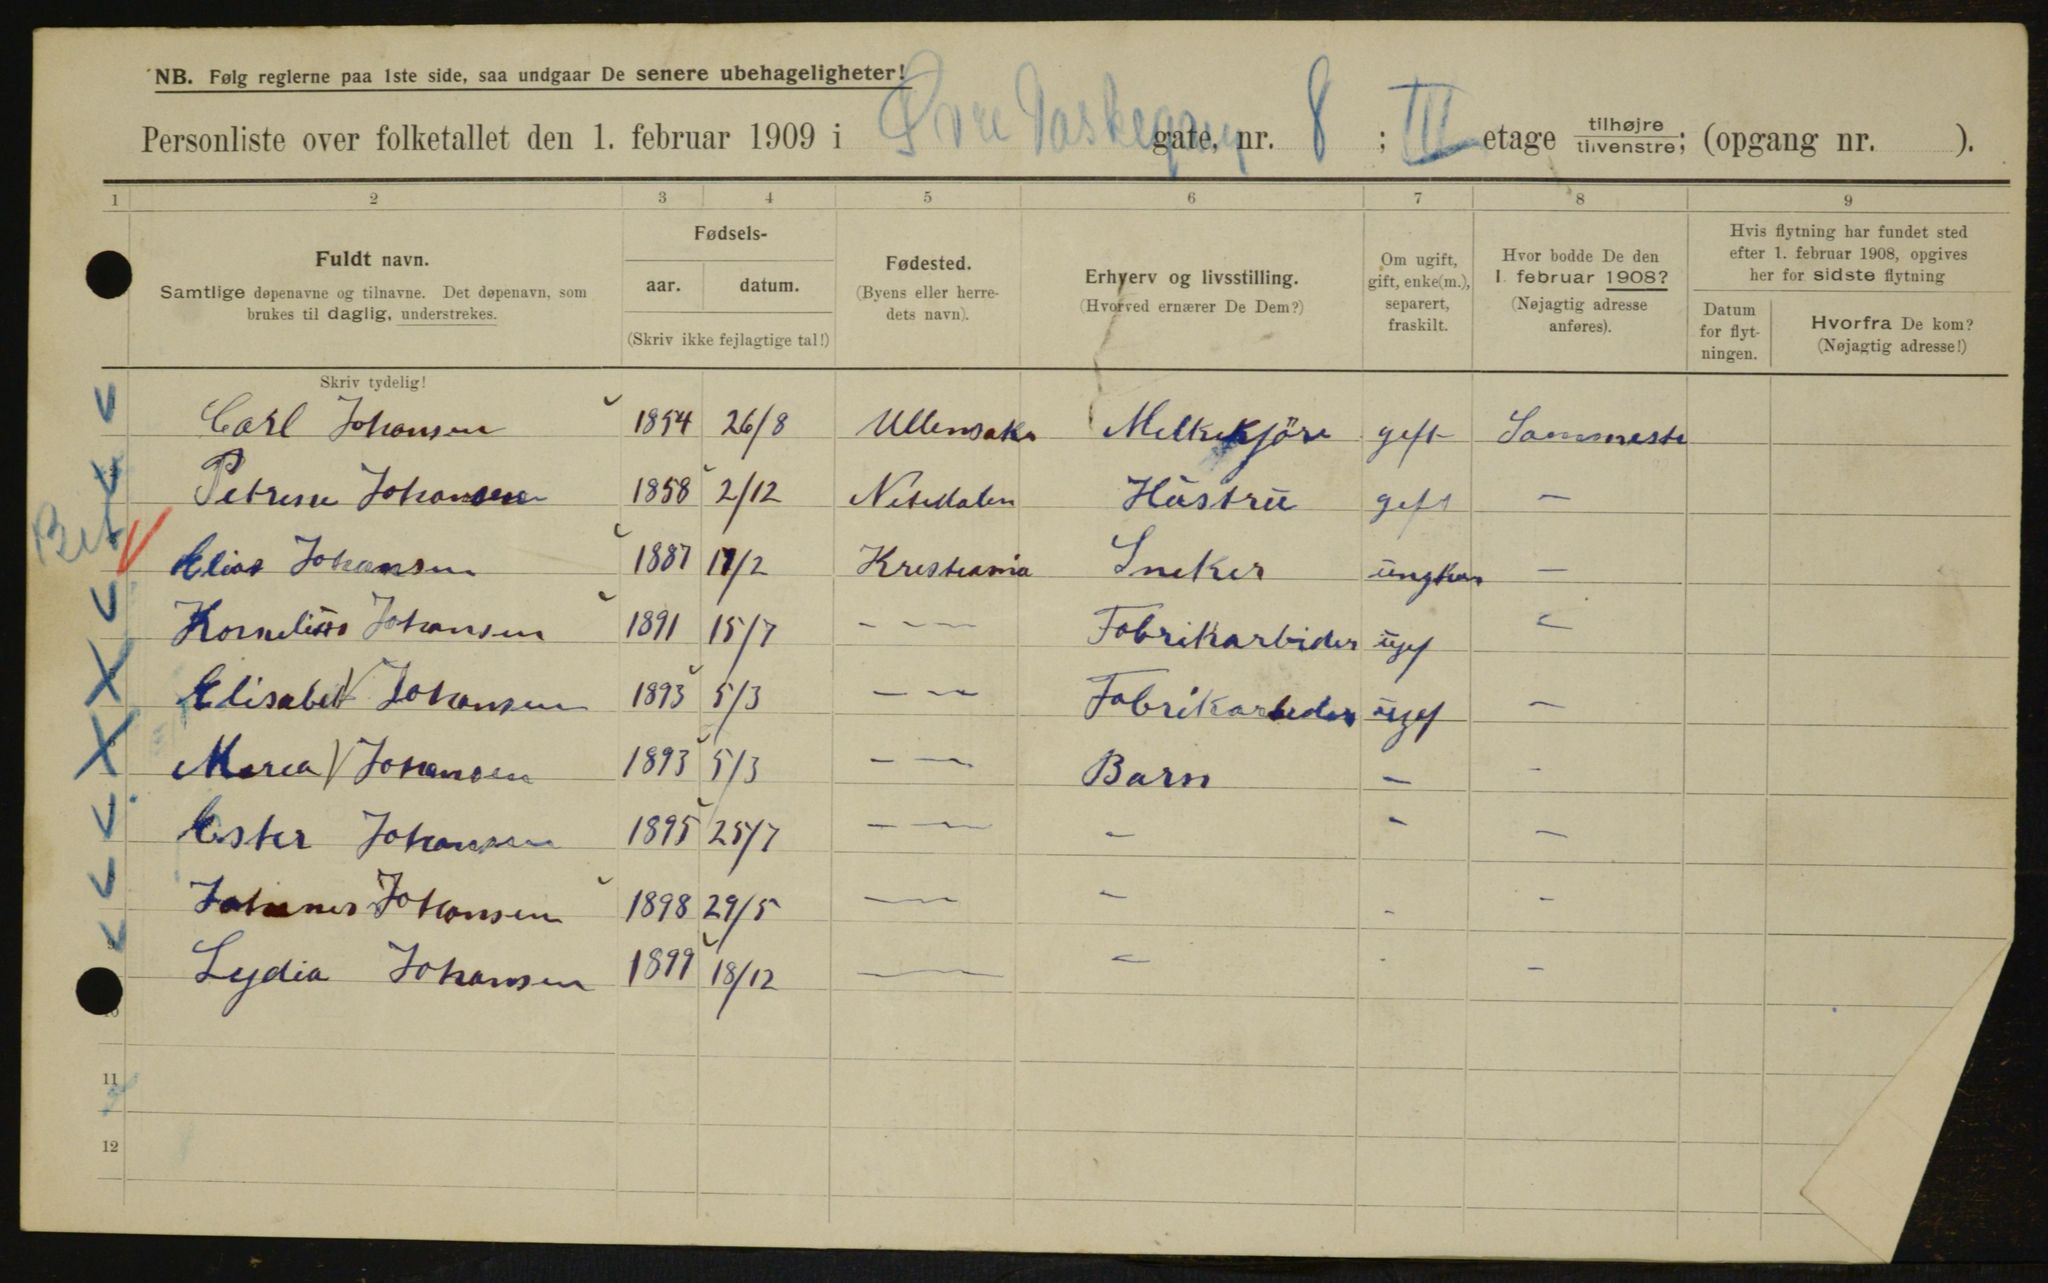 NB. Følg reglerne paa 1ste side, saa undgaar De senere ubehageligheter!
Personliste over folketallet den 1. februar 1909 i Øvre Vaskegang gate, nr. 8 ; III etage tilhøjre tilvenstre; (opgang nr. ).
1 2 3 4 5 6 7 8 9
Fuldt navn.
Samtlige døpenavne og tilnavne. Det døpenavn, som
brukes til daglig, understrekes.
Fødsels-
aar. datum.
(Skriv ikke fejlagtige tal!)
Fødested.
(Byens eller herre-
dets navn).
Erhverv og livsstilling.
(Hvorved ernærer De Dem?)
Om ugift,
gift, enke(m.),
separert,
fraskilt.
Hvor bodde De den
1. februar 1908?
(Nøjagtig adresse
anføres).
Hvis flytning har fundet sted
efter 1. februar 1908, opgives
her for sidste flytning
Datum
for flyt-
ningen.
Hvorfra De kom?
(Nøjagtig adresse!)
Skriv tydelig!
Carl Johansen 1854 26/8 Ullensaker Melkekjöre geft Sammeste
Petrine Johansen 1858 2/12 Nitedalen Hüstrü geft —
Elias Johansen 1887 17/2 Kristiania Sneker üngkar —
Kornelius Johansen 1891 15/7 — — — Fabrikarbider ügef —
Elisabet Johansen 1893 5/3 — — Fabrikarbeder ügef —
Marea Johansen 1893 5/3 — — Barn — -
Ester Johansen 1895 25/7 — — — - —
Johanes Johansen 1898 29/5 — — - - -
Lydia Johansen 1899 18/12 — - - -
10
11
12